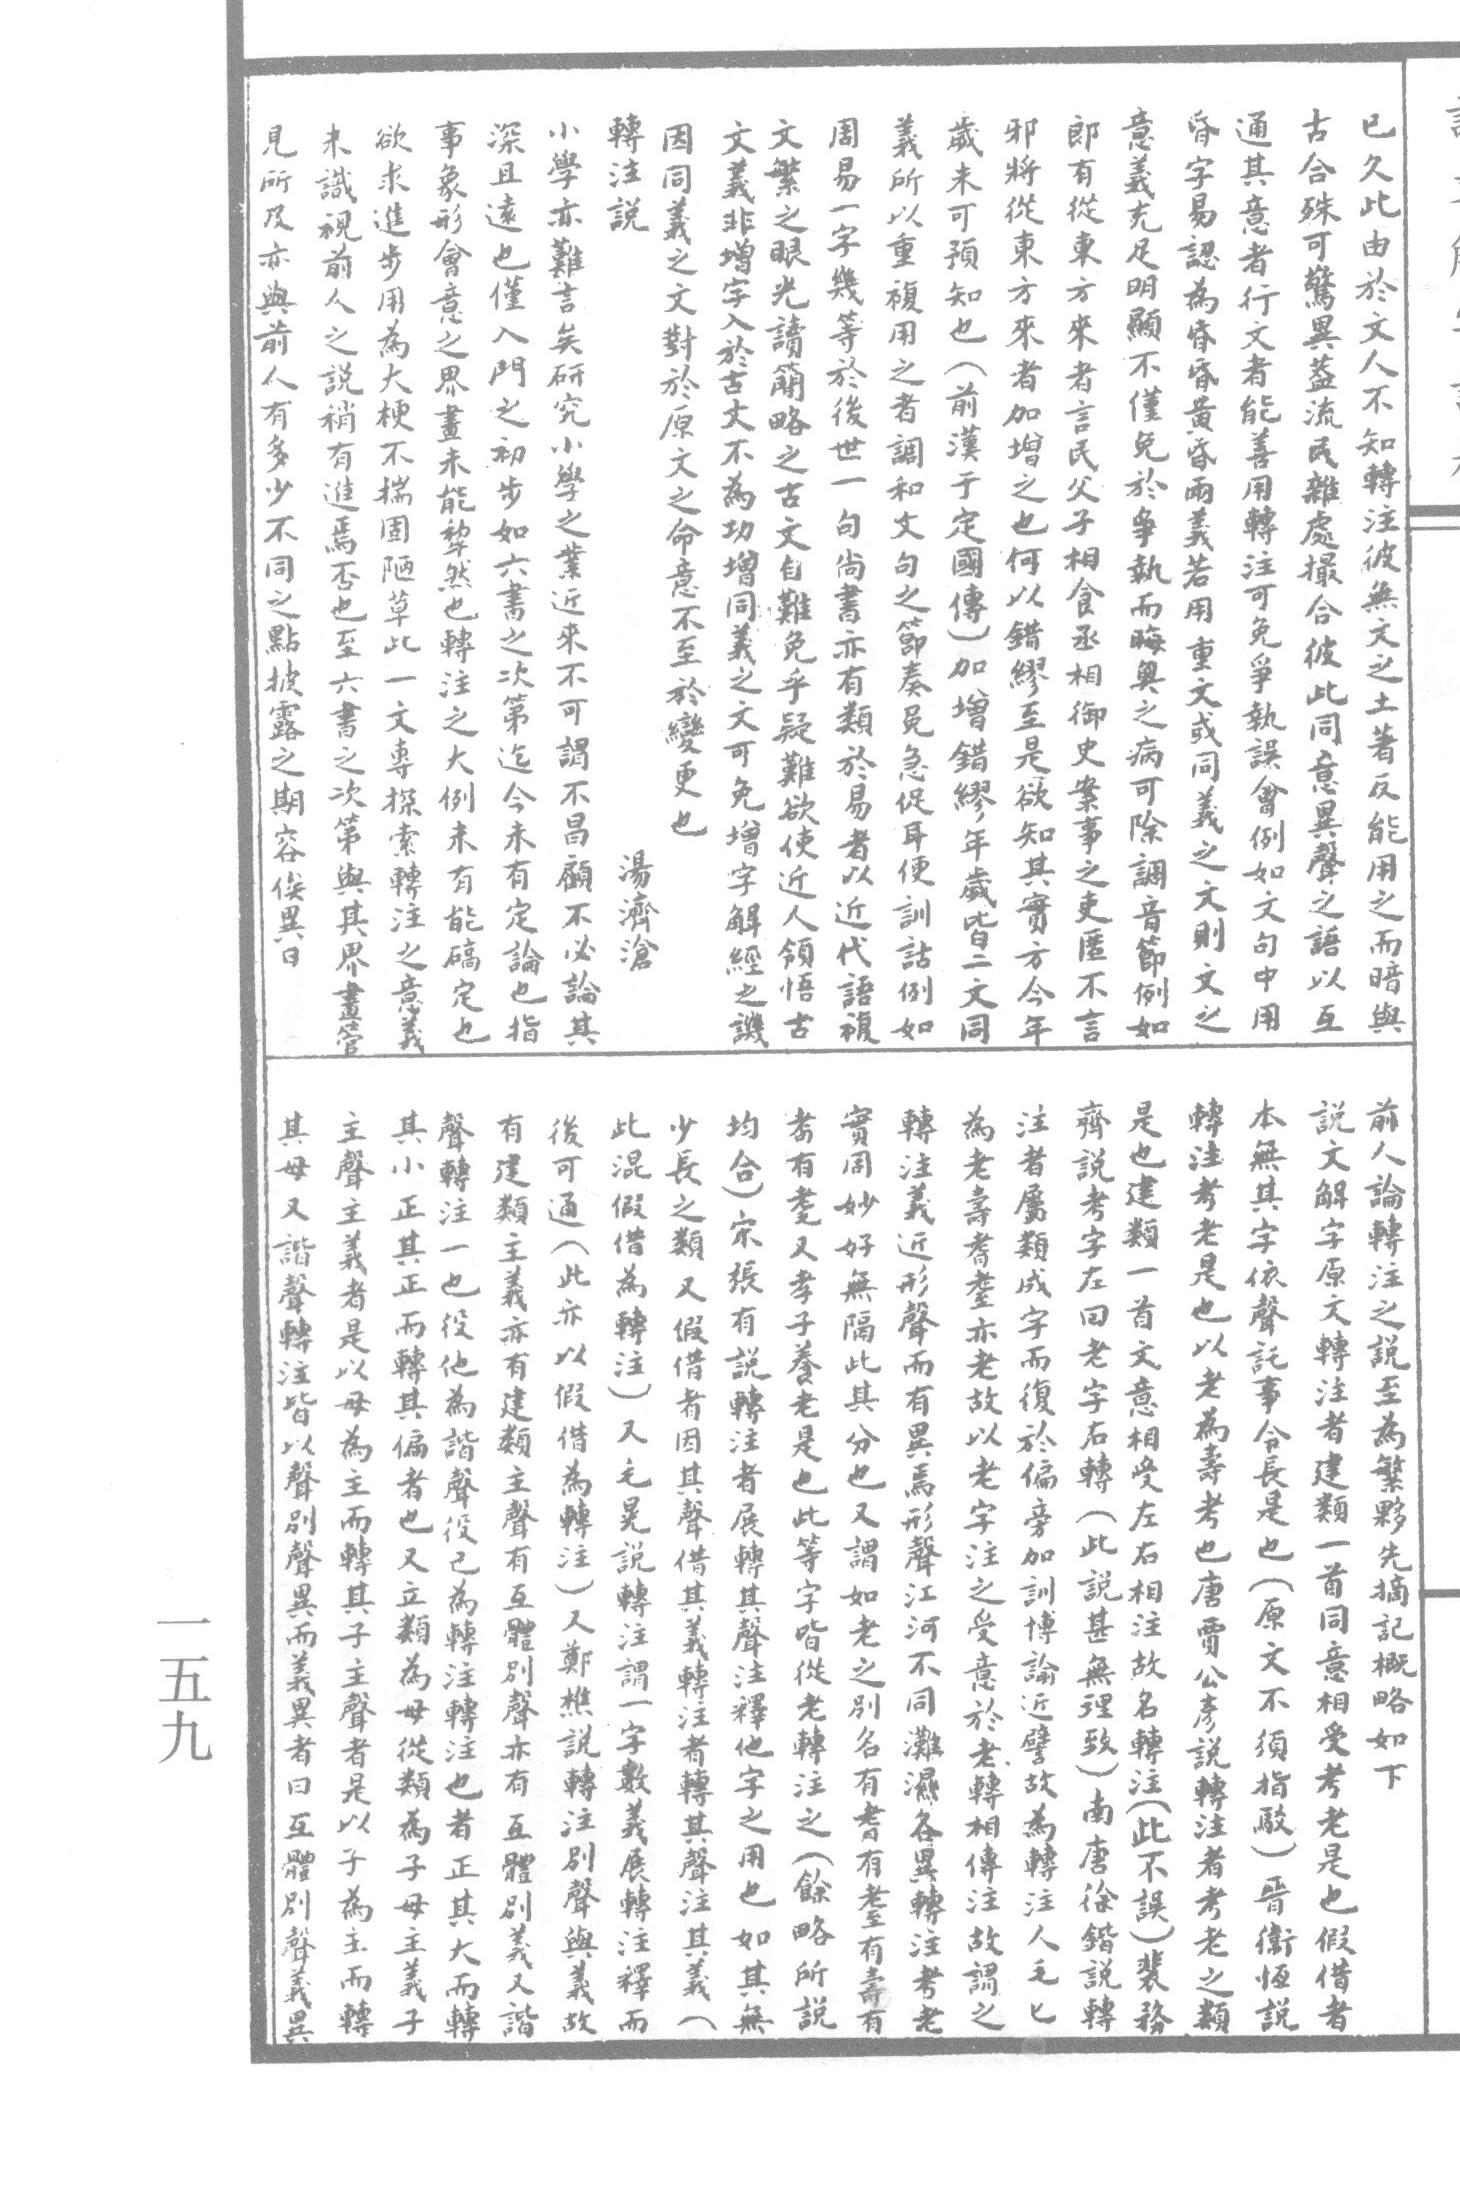 已久此由於文人不知轉注彼無文之土著反能用之而暗與
古合殊可驚異蓋流民雜處撮合彼此同意異聲之語以互
通其意者行文者能善用轉注可免爭執誤會例如文句中用
昏字易認為昏昏黃昏兩義若用重文或同義之文則文之
意義充足明顯不僅免於爭執而晦奧之病可除調音節例如
郎有從東方來者言民父子相食丞相御史案事之吏匿不言
邪將從東方來者加增之也何以錯繆至是欲知其實方今年
歲未可預知也(前漢于定國傳)加增錯繆年歲皆二文同
義所以重複用之者調和文句之節奏免急促耳便訓詁例如
周易一字幾等於後世一句尚書亦有類於易者以近代語複
文繁之眼光讀簡略之古文自難免乎疑難欲使近人領悟古
文義非增字入於古文不為功增同義之文可免增字解經之譏
因同義之文對於原文之命意不至於變更也
轉注說
湯濟滄
小學亦難言矣研究小學之業近來不可謂不昌顧不必論其
深且遠也僅入門之初步如六書之次第迄今未有定論也指
事象形會意之界畫未能犂然也轉注之大例未有能碻定也
欲求進步用為大梗不揣固陋草此一文專探索轉注之意義
未識視前人之說稍有進焉否也至六書之次第與其界畫管
見所及亦與前人有多少不同之點披露之期容俟異日
前人論轉注之說至為繁夥先摘記概略如下
說文解字原文轉注者建類一首同意相受考老是也假借者
本無其字依聲託事令長是也(原文不須指駁)晉衞恆說
轉注考老是也以老為壽考也唐賈公彥說轉注者考老之類
是也建類一首文意相受左右相注故名轉注(此不誤)裴務
齊說考字左回老字右轉(此說甚無理致)南唐徐鍇說轉
注者屬類成字而復於偏旁加訓博諭近譬故為轉注人毛匕
為老壽耆耋亦老故以老字注之受意於老轉相傳注故謂之
轉注義近形聲而有異焉形聲江河不同灘濕各異轉注考老
實同妙好無隔此其分也又謂如老之別名有耆有耋有壽有
耄有耊又孝子養老是也此等字皆從老轉注之(餘略所說
均合)宋張有說轉注者展轉其聲注釋他字之用也如其無
少長之類又假借者因其聲借其義轉注者轉其聲注其義(
此混假借為轉注)又毛晃說轉注謂一字數義展轉注釋而
後可通(此亦以假借為轉注)又鄭樵說轉注別聲與義故
有建類主義亦有建類主聲有互體別聲亦有互體別義又諧
聲轉注一也役他為諧聲役己為轉注轉注也者正其大而轉
其小正其正而轉其偏者也又立類為母從類為子母主義子
主聲主義者是以母為主而轉其子主聲者是以子為主而轉
其母又諧聲轉注皆以聲別聲異而義異者曰互體別聲義異
一五九